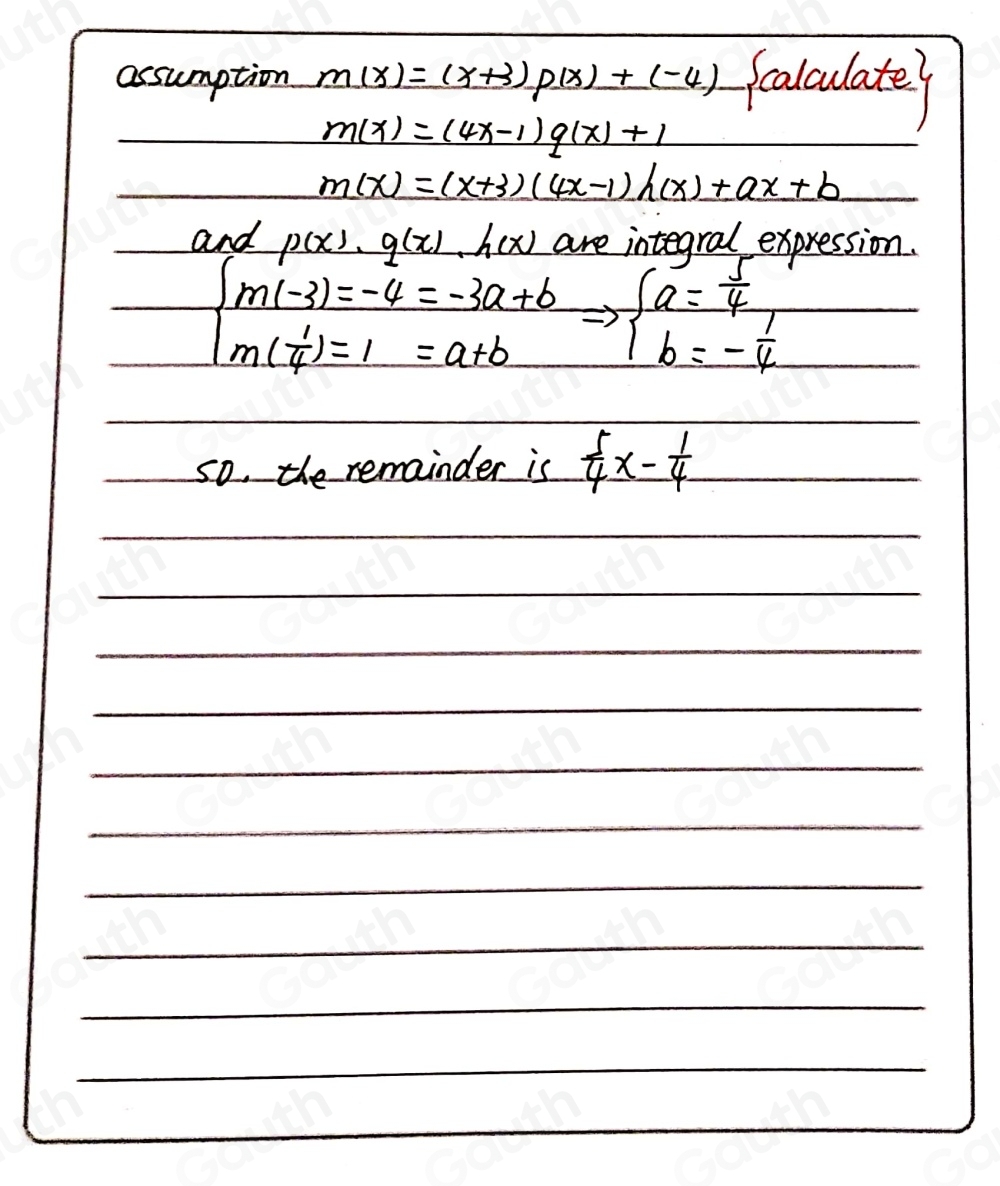 assumption m(x)=(x+3)p(x)+(-4) {calculate}
m(x)=(4x-1)q(x)+1
m(x)=(x+3)(4x-1)h(x)+ax+b
and p(x). q(x). h(x) are integral expression.
{m(-3)=-4=-3a+b => {a=5/4
m(1/4)=1 =a+b b=-1/4
so. the remainder is 5/4x-1/4